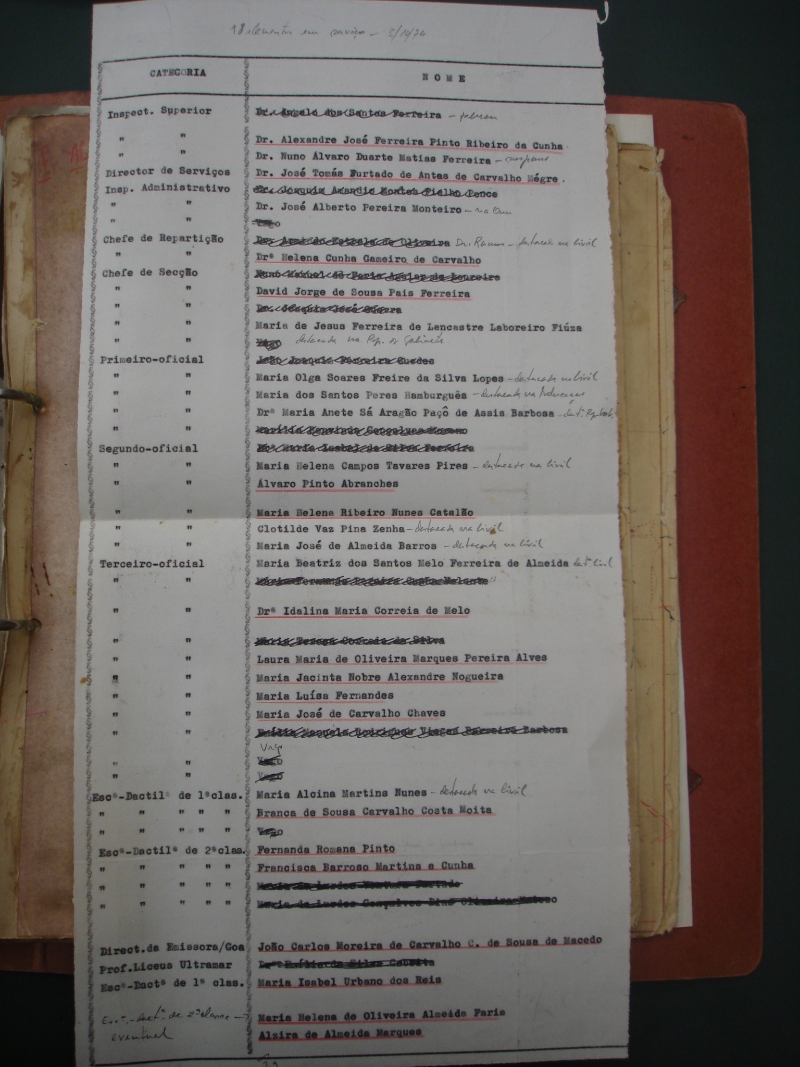 18 elementos em serviço -
CATEGORIA NOME
Inspect. Superior Dr. Angelo dos Santos Ferreira -
" " Dr. Alexandre José Ferreira Pinto Ribeiro da Cunha
" " Dr. Nuno Álvaro Duarte Matias Ferreira -
Director de Serviços Dr. José Tomás Furtado de Antas de Carvalho Mégre.
Insp. Administrativo Dr. Joaquim
" " Dr. José Alberto Pereira Monteiro -
" " Vago
Chefe de Repartição de Oliveira Dr. Ramos - destacado na Civil
" " Drª Helena Cunha Gameiro de Carvalho
Chefe de Secção
" " David Jorge de Sousa Pais Ferreira
" " Dr. Joaquim José
" " Maria de Jesus Ferreira de Lencastre Laboreiro Fiúza
" " Vago destacada na Rep. do Gabinete
Primeiro-oficial João Joaquim Ferreira Guedes
" " Maria Olga Soares Freire da Silva Lopes - destacada na Civil
" " Maria dos Santos Peres Hamburguês - destacada na
" " Drª Maria Anete Sá Aragão Paçô de Assis Barbosa -
" "
Segundo-oficial Mª Maria Isabel da Silva Ferreira
" " Maria Helena Campos Tavares Pires - destacada na Civil
" " Álvaro Pinto Abranches
" " Maria Helena Ribeiro Nunes Catalão
" " Clotilde Vaz Pina Zenha - destacada na Civil
" " Maria José de Almeida Barros - destacada na Civil
Terceiro-oficial Maria Beatriz dos Santos Melo Ferreira de Almeida
" " Maria Fernanda
" " Drª Idalina Maria Correia de Melo
" " Maria Teresa Correia da Silva
" " Laura Maria de Oliveira Marques Pereira Alves
" " Maria Jacinta Nobre Alexandre Nogueira
" " Maria Luísa Fernandes
" " Maria José de Carvalho Chaves
" " Manuela Rodrigues Viegas Barbosa
Vago
" " Vago
" " Vago
Escª-Dactilª de 1ªclas. Maria Alcina Martins Nunes - destacada na Civil
" " " " " Branca de Sousa Carvalho Costa Moita
" " " " " Vago
Escª-Dactilª de 2ªclas. Fernanda Romana Pinto
" " " " " Francisca Barroso Martins e Cunha
" " " " " Maria de Lurdes
" " " " " Maria de Lurdes Gonçalves Dias Oliveira Mateus
Direct.da Emissora/Goa João Carlos Moreira de Carvalho C. de Sousa de Macedo
Prof.Liceus Ultramar Drª Emília da Silva
Escª-Dactª de 1ª clas. Maria Isabel Urbano dos Reis
Escª.-dactª. de 2ª classe - Maria Helena de Oliveira Almeida Faria
eventual Alzira de Almeida Marques